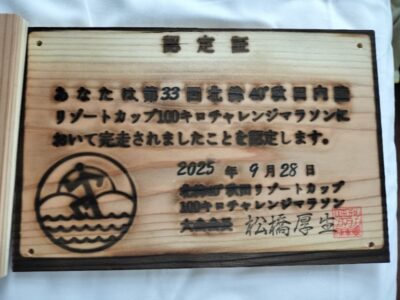 認定証
あなたは第33回北緯40°秋田内陸
リゾートカップ100キロチャレンジマラソンに
おいて完走されましたことを認定します。
2025年9月28日
北緯40°秋田リゾートカップ
100キロチャレンジマラソン
大会会長 松橋厚生